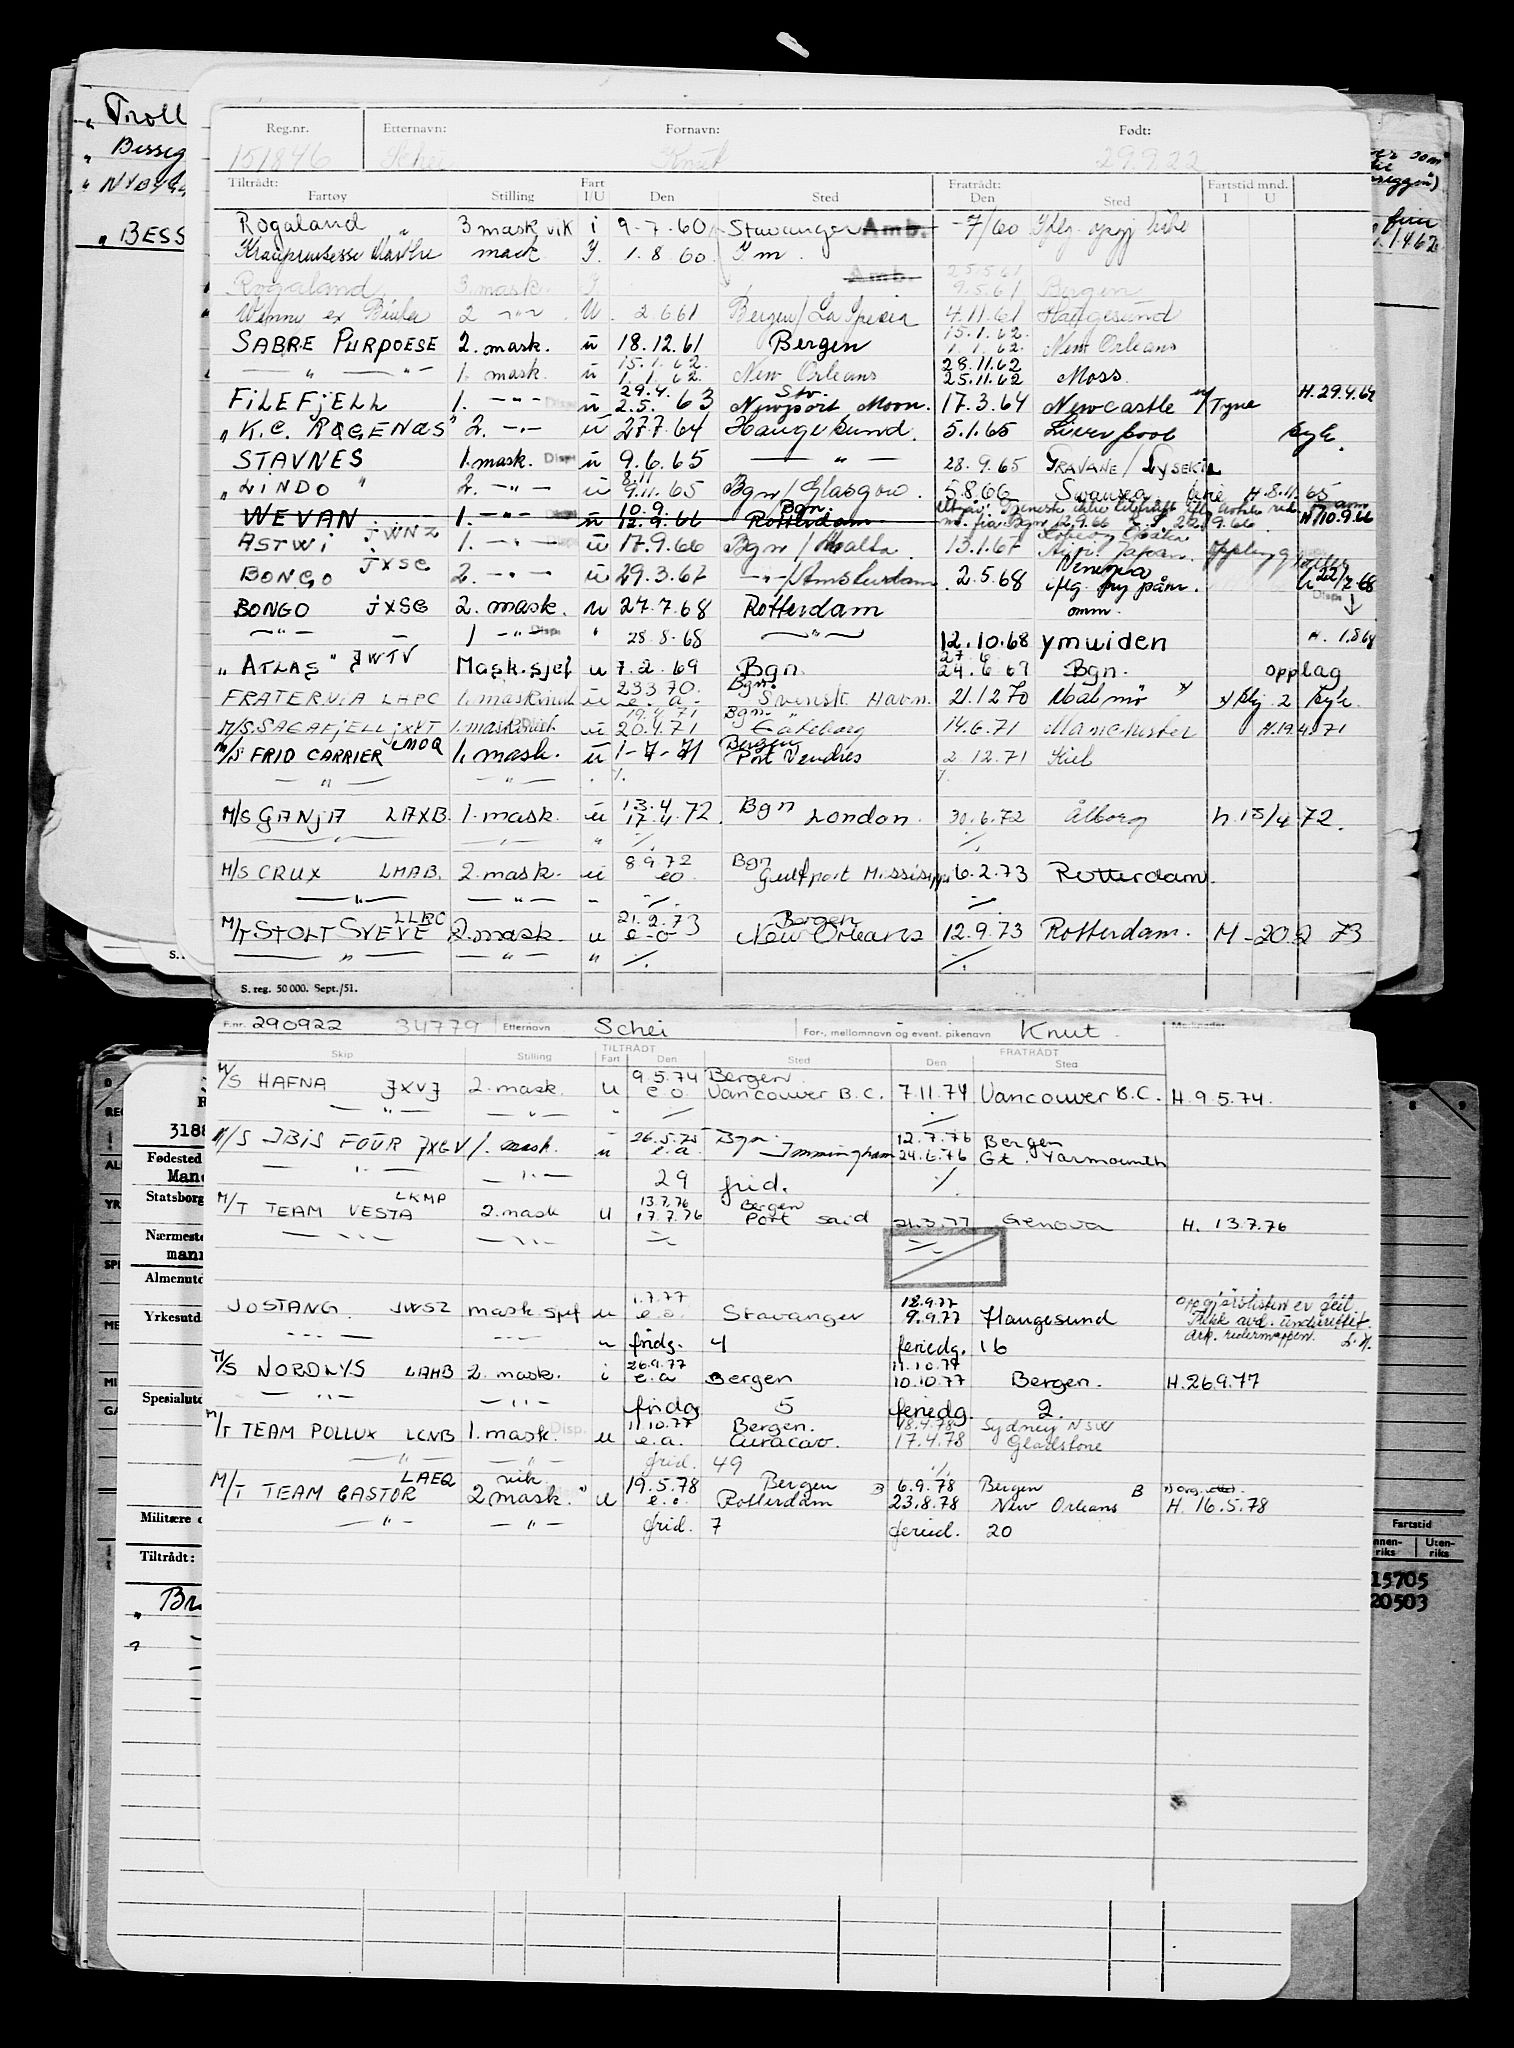 " Troll
" Besseg
" BESS
Reg.nr. Etternavn: Fornavn: Født:
151846 Schei Knut 29.9.22
Tiltrådt: Fart Fratrådt: Fartstid mnd.
Fartøy Stilling I/U Den Sted Den Sted I U
Rogaland " 3 mask vik i 9-7.60 Stavanger Amb. -7/60 Iflg. oppgj liste
Kronprinsesse Märthe mask I. 1.8 60. I m.
25.5.61
Rogaland 3. mask. I Amb. 9.5.61 Bergen
Wenny ex Biula 2 -"- U. 2.6.61 Bergen/La Spezia 4.11.61 Haugesund
15.1.62.
SABRE PURPOESE 2. mask. u 18.12.61 Bergen 1.1.62. New Orleans
15.1.62. 28.11.62
-"- -"- 1. mask. u 1.1.62. New Orleans 25.11.62 Moss.
29.4. Stv. H. 29.4.63
FILEFJELL 1. -"- Disp u 2.5.63 Newport Moon. 17.3.64 Newcastle u/Tyne
" K.C. ROGENÆS" 2. -"- u 27.7.64 Haugesund. 5.1.65 Liverpool syk.
STAVNES 1. mask. Disp u 9.6.65 -"- 28.9.65 GRAVANE/LYSEKIL
8.11
" LINDO " 2. -"- u 9.11.65 Bgn/Glasgow. 5.8.66 Swansea H. 8.11.65
10.9. Bgn.
WEVAN 1. -"- Disp u 12.9.66 Rotterdam M/10.9.66
ASTWI JWNZ 1. -"- Disp u 17.9.66 Bgn/Malta 13.1.67 Japan.
BONGO JXSG 2. -"- u 29.3.67 -"-/Amsterdam 2.5.68 iflg. ny påm. 22/7.68
BONGO JXSG 2. mask. u 27.7.68 Rotterdam omm. Disp.
-"- - 1 -"- Disp " 28.8.68 -"- 12.10.68 Ymuiden H. 1.8.68
27.6
" ATLAS " JWTV Mask.sjef u 7.2.69 Bgn. 24.6.69 Bgn. opplag
23.3.70. Bgn.
FRATERVIA LHPC 1. maskinist u e.a. Svensk. Havn. 21.12.70 Malmö x) x) skj. 2 syk.
19.4.71 Bgn.
M/S SAGAFJELL JXYT 1. maskinist u 20.4.71 Göteborg 14.6.71 Manchester H.19.4.71
Bergen
M/S FRID CARRIER LMOQ 1. mask. u 1-7-71 Port Vendres 2.12.71 Kiel
-"- -"- " ./. ./.
13.4 Bgn
M/S GANJA LAXB. 1. mask. u 17.4.72. London. 30.6.72 Ålborg h. 13/4.72.
-"- -"- " ./. ./.
8.9.72 Bgn
M/S CRUX LMAB. 2. mask. u eo. Gulfport Missisippi 6.2.73 Rotterdam.
-"- -"- - ./. ./.
LLRC 21.2.73 Bergen
M/T STOLT SVEVE 2. mask. u e-o New Orleans 12.9.73 Rotterdam. M-20.2 73
-"- -"- " ./. ./.
S. reg. 50 000. Sept./51.
F.nr. 290922 34779 Etternavn Schei For-, mellomnavn og event. pikenavn Knut
TILTRÅDT FRATRÅDT
Skip Stilling Fart Den Sted Den Sted
9.5.74 Bergen.
M/S HAFNA JXVJ 2. mask. u e.o. Vancouver B.C. 7.11.74 Vancouver B.C. H. 9.5.74.
-"- -"- " ./. ./.
26.5.75 Bgn. 12.7.76 Bergen
M/S IBIS FOUR JXGV 1. mask. u e.a. Immingham 24.6.76 Gt. Yarmouth
-"- -"- 29 frid. ./.
LKMP 13.7.76 Bergen
M/T TEAM VESTA 2. mask u 17.7.76 Port Said 21.3.77 Genova H. 13.7.76
-"- -"- ./. ./.
1.7.77 12.9.77 Oppgjørslisten er feil.
JOSTANG. JWSZ mask.sjef u e.o. Stavanger 9.9.77 Haugesund Ikke avd. underrettet.
-"- -"- " fridg. 4 feriedg. 16 Ark. redermappen.
26.9.77 11.10.77
M/S NORDLYS LAHB 2. mask. i e.a Bergen 10.10.77 Bergen. H. 26.9.77
-"- -"- fridg 5 feriedg. 2.
11.10.77 Bergen. 18.4.78 Sydney NSW
M/T TEAM POLLUX LCNB 1. mask. Disp. u e.a. Curacao. 17.4.78 Gladstone
-"- -"- frid. 49 ./.
LAEQ vik. 19.5.78 Bergen 6.9.78 Bergen
M/T TEAM CASTOR 2 mask." u e.o. Rotterdam 23.8.78 New Orleans B H. 16.5.78
-"- -"- frid. 7 feried. 20
3188
Fødested
Statsborg
Nærmeste
Almenutd
Yrkesutd
Spesialutd
Militære
Tiltrådt:
Fartstid
Uten-
riks riks
15705
20503